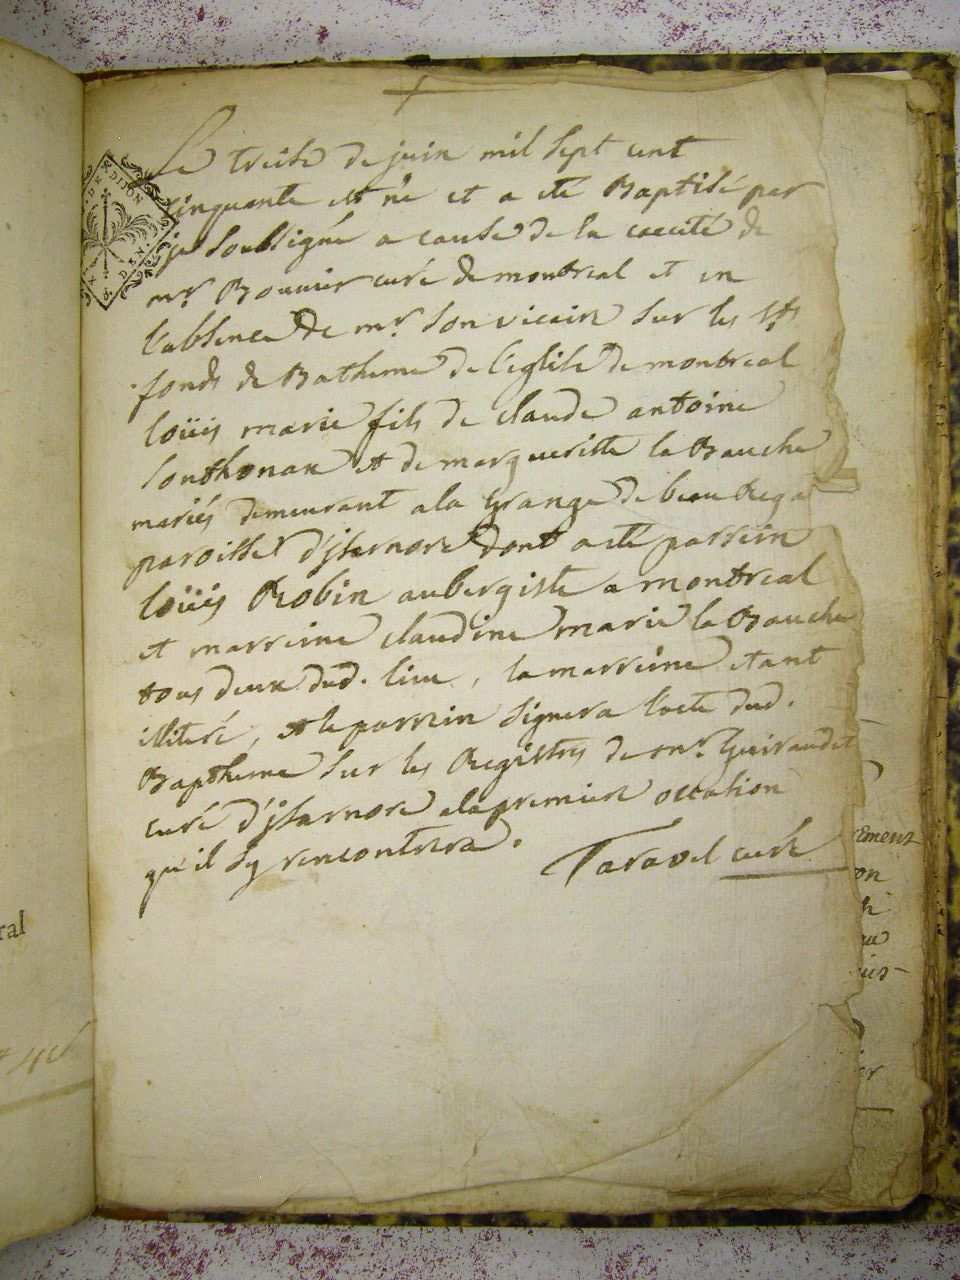 DE DIJON
DEN.
Le treise de juin mil sept cent
cinquante est né et a eté Baptisé par
je soubsigné a cause de la caecité de
mr. Bouvier curé de montreal et en
l'absence de mr. son vicaire sur les sts
fonds de Batheme de l'eglise de montreal
loüis marie fils de claude antoine
Sonthonax et de margueritte la Bauche
mariés demeurant a la Grange de beau Rega
paroisse d'jsarnore dont a eté parrein
loüis Robin aubergiste a montreal
et marreine claudine marie la Bauche
tous deux dud. lieu, la marreine etant
illiteré, et le parrein signera l'acte dud.
Baptheme sur les Registres de mr. Guiraudet
curé d'jsarnore a la premiere occasion
qu'il s'y rencontrera.
Taravel curé
ral
ement
on
au
er